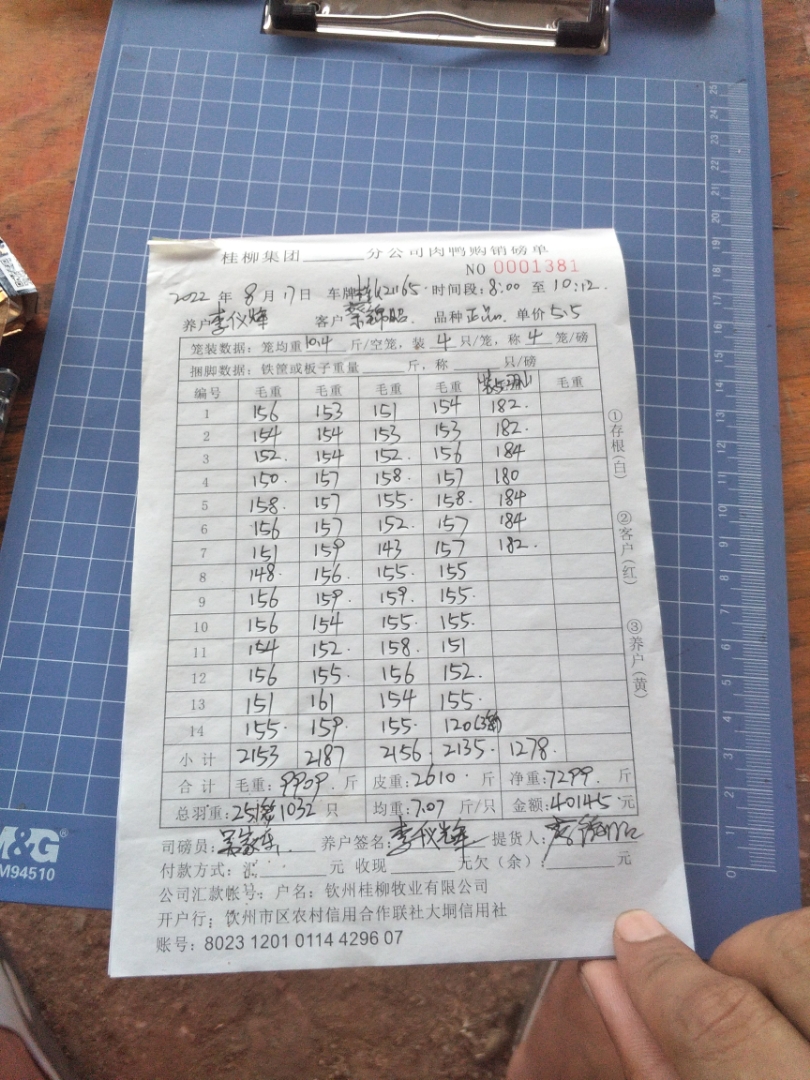 桂柳集团______分公司肉鸭购销磅单
NO 0001381
2022 年 8 月 17 日 车牌 桂K21165 时间段: 8:00 至 10:12.
养户 李仪辉 客户 品种 正品 单价 5.5
笼装数据: 笼均重 10.4 斤/空笼, 装 4 只/笼, 称 4 笼/磅
捆脚数据: 铁筐或板子重量______斤, 称______只/磅
编号 毛重 毛重 毛重 毛重 毛重
1 156 153 151 154 182.
2 154 154 153 153 182.
3 152. 154 152. 156 184
4 150. 157 158. 157 180
5 158. 157 155. 158. 184
6 156 157 152. 157 184
7 151 159 143 157 182.
8 148. 156. 155. 155
9 156 159. 159. 155.
10 156 154 155. 155.
11 154 152. 158. 151
12 156 155. 156 152.
13 151 161 154 155.
14 155. 159. 155. 120(3笼)
小计 2153 2187 2156. 2135. 1278.
合计 毛重: 9909. 斤 皮重: 2610. 斤 净重: 7299. 斤
总羽重: 258笼 1032 只 均重: 7.07 斤/只 金额: 40145. 元
司磅员: 养户签名: 李仪辉 提货人:
付款方式: 元 收现______元欠(余): ______元
公司汇款帐号: 户名: 钦州桂柳牧业有限公司
开户行: 钦州市区农村信用合作联社大垌信用社
账号: 8023 1201 0114 4296 07
①存根(白)
②客户(红)
③养户(黄)
M&G
M94510
25
24
23
22
21
20
19
10
9
8
7
6
5
4
3
2
1
0